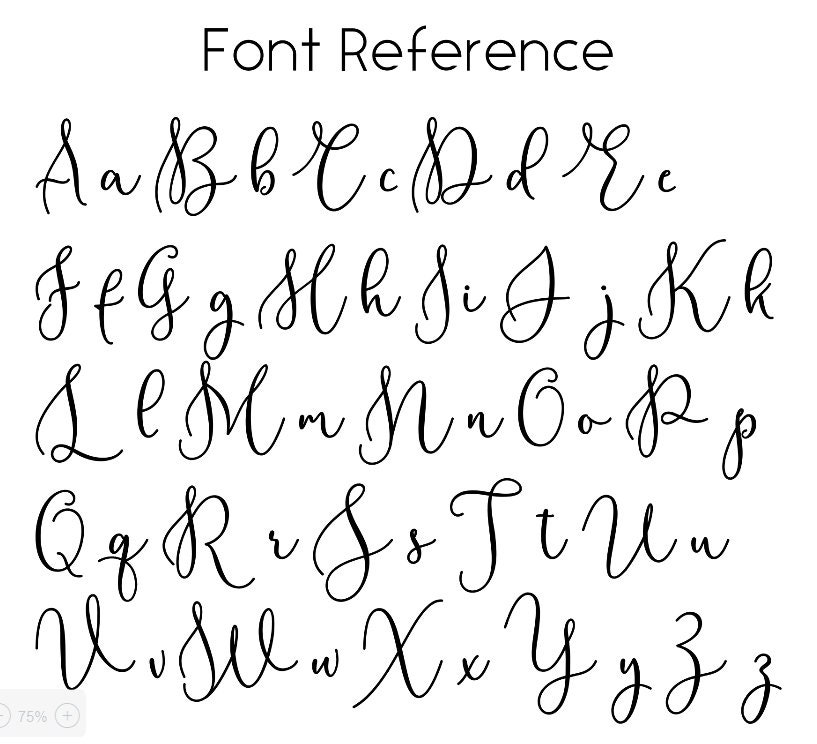 Font Reference
A a B b C c D d E e
F f G g H h I i J j K k
L l M m N n O o P p
Q q R r S s T t U u
V v W w X x Y y Z z
75%